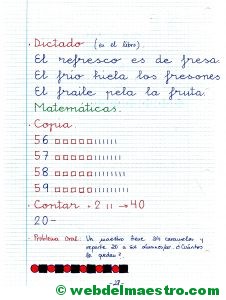 · Dictado: (es el libro).
El refresco es de fresa.
El frío hiela los fresones
El fraile pela la fruta.
Matemáticas.
· Copia.
56
57
58
59
· Contar + 2 → 40
20-
· Problema oral: Un maestro tiene 34 caramelos y
reparte 20 a sus alumnos. ¿Cuántos
le quedan?
- 27 -
© webdelmaestro.com